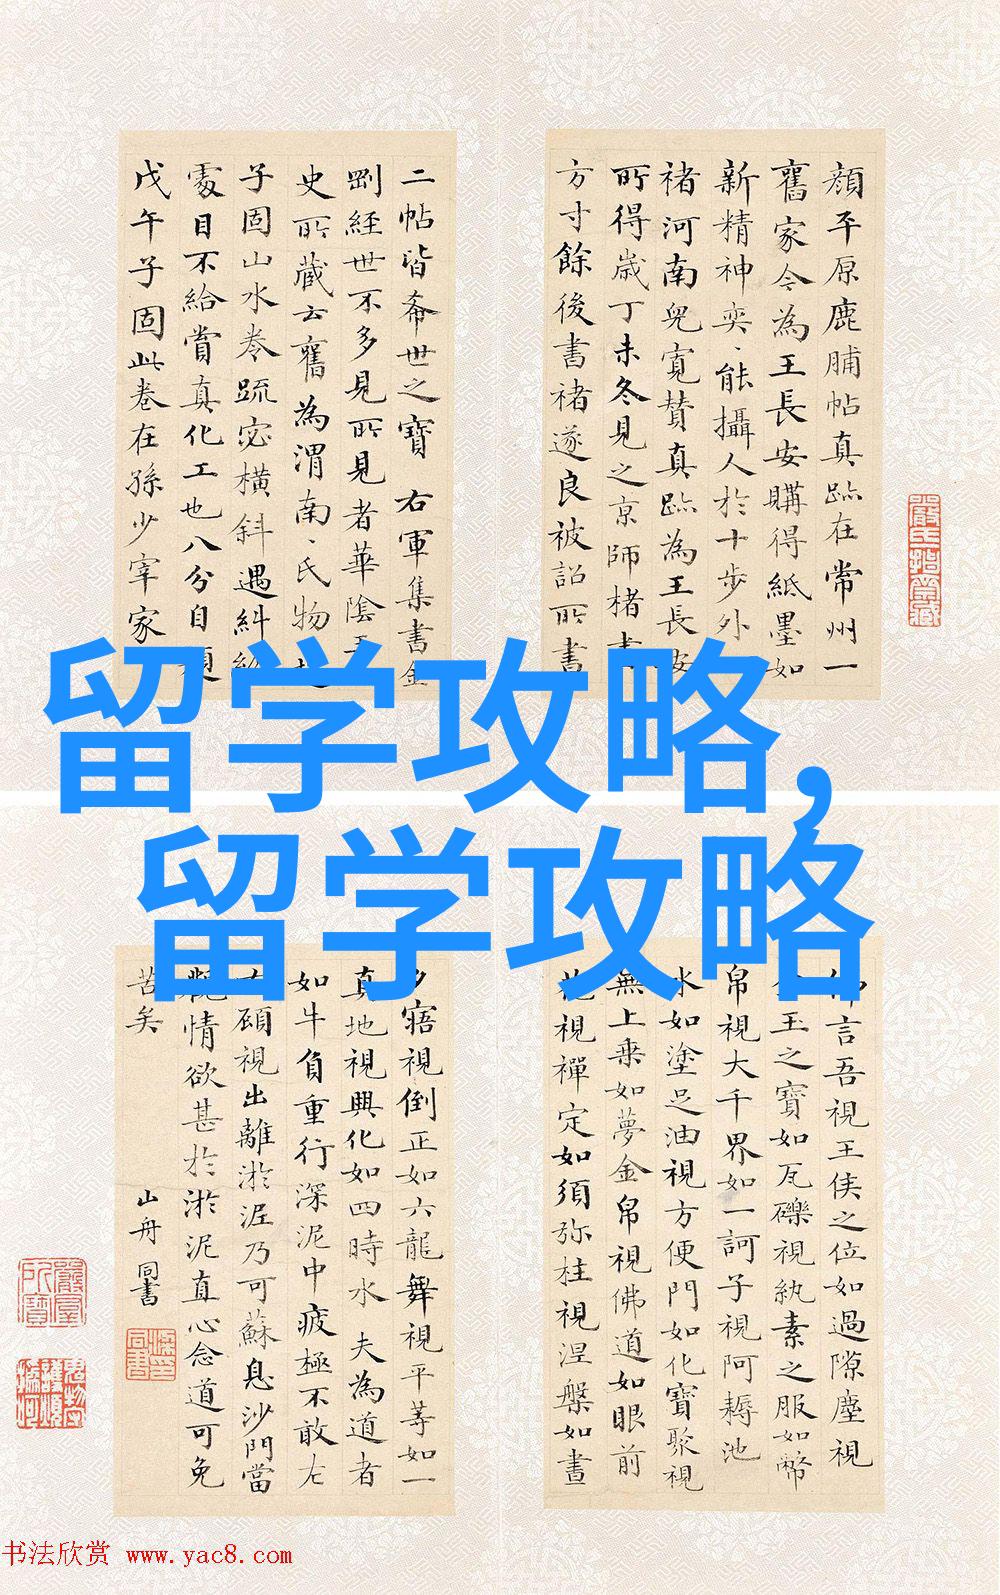 顔平原鹿脯帖真跡在常州一
舊家今為王長安購得紙墨如
新精神奕、能攝人於十步外
褚河南兒寬贊真跡為王長安
所得歲丁未冬見之京師楮書
方寸餘後書褚遂良被詔所書
二帖皆希世之寶 右軍集書金
剛經世不多見所見者華陰王
史所藏云舊為渭南、氏物
子固山水卷疏密橫斜遇糾紛
處目不給賞真化工也八分自題
戊午子固此卷在孫少宰家
留学攻略,
留学攻略
佛言吾視王侯之位如過隙塵視
金玉之寶如瓦礫視紈素之服如幣
帛視大千界如一訶子視阿耨池
水如塗足油視方便門如化寶聚視
無上乗如夢金帛視佛道如眼前
花視禪定如須弥柱視涅槃如晝
夕寤視倒正如六龍舞視平等如一
真地視興化如四時水 夫為道者
如牛負重行深泥中疲極不敢左
右顧視出離淤泥乃可蘇息沙門當
觀情欲甚於淤泥直心念道可免
苦矣 山舟同書
書法欣赏 www.yac8.com